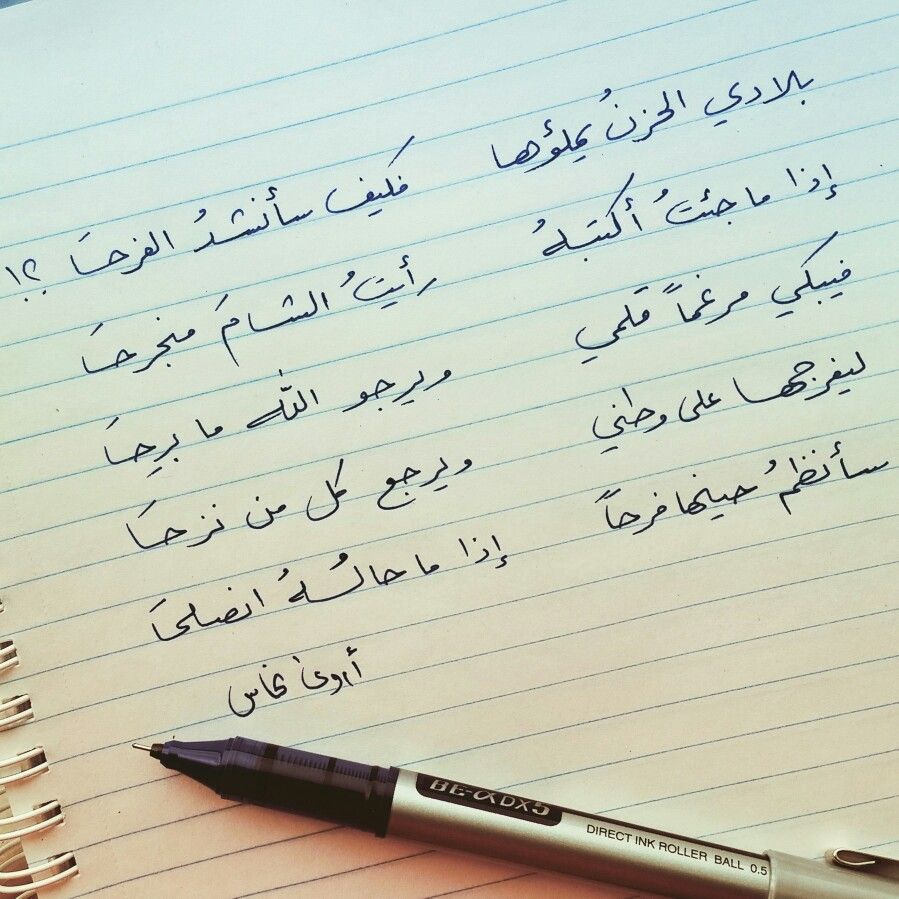 بلادي الحزنُ يملؤها
فكيف سأنشدُ الفرحا ؟!
إذا ما جئتُ أكتبهُ
رأيتُ الشامَ منجرحا
فيبكي مرغماً قلمي
ويرجو الله ما برحا
ليفرجها على وطني
ويرجع كل من نزحا
سأنظمُ حينها فرحاً
إذا ما حالُهُ انصلحا
أروى
BE-α DX5
DIRECT INK ROLLER BALL 0.5